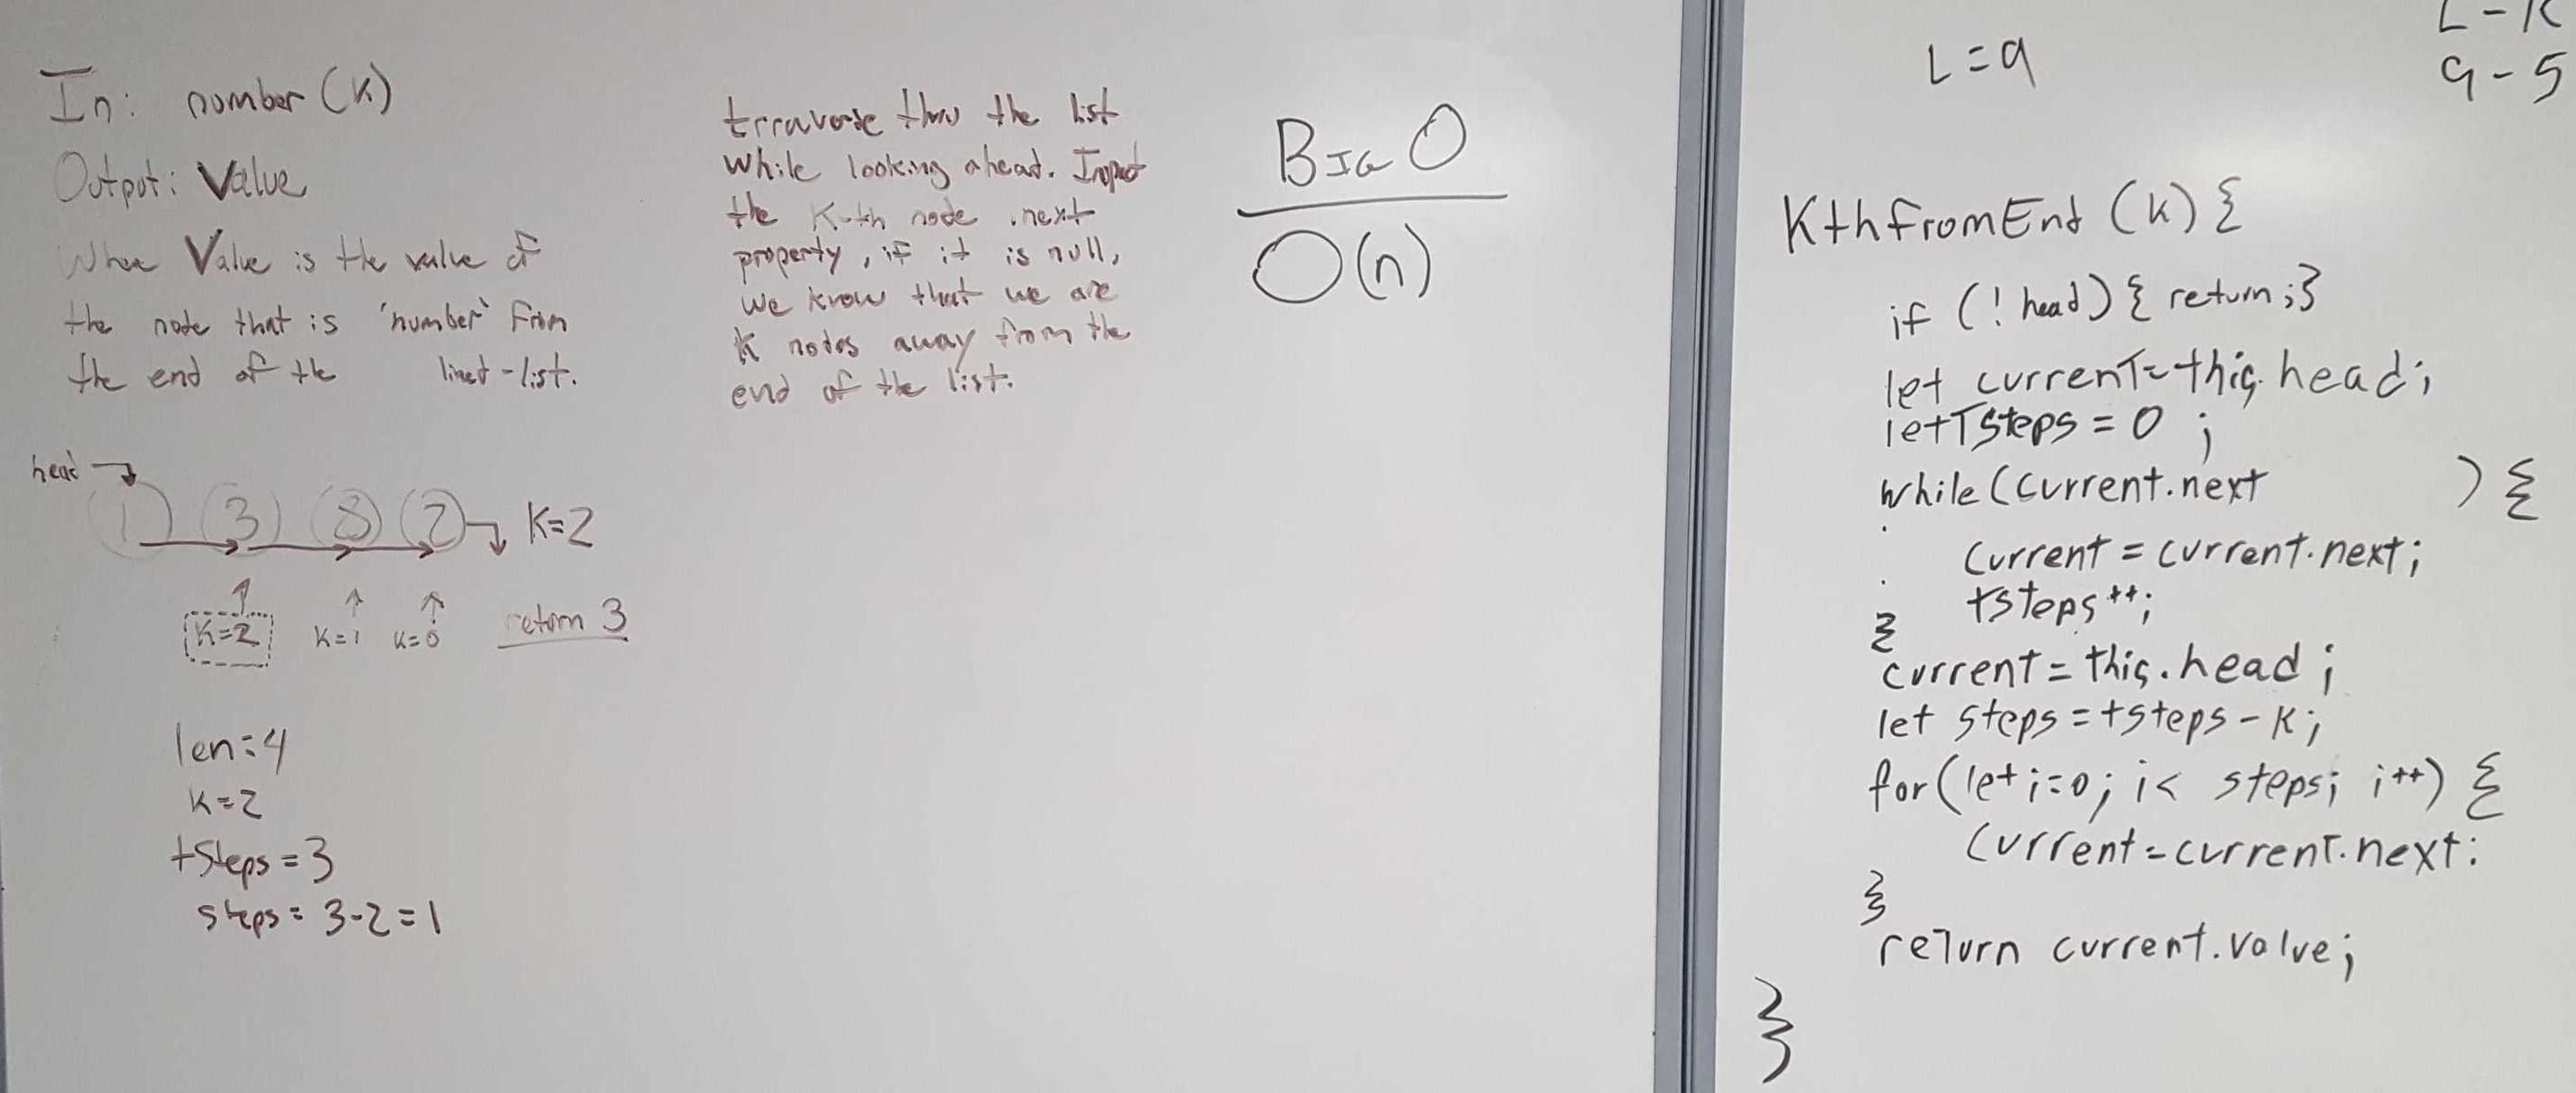 In: number (K)
Output: Value
Where Value is the value of
the node that is 'number' from
the end of the lined-list.
head
1 3 8 2 K=2
K=2 K=1 K=0 return 3
len=4
K=2
tSteps=3
steps= 3-2=1
trraverse thru the list
while looking ahead. Inpect
the K-th node .next
property, if it is null,
we know that we are
K nodes away from the
end of the list.
BIG O
O(n)
L=9
L-K
9-5
KthfromEnd (K){
if (! head){ return;}
let current=this.head;
let Tsteps=0 ;
while(current.next ) {
current = current.next;
tsteps++;
}
current=this.head;
let steps=tsteps-K;
for(let i=0; i< steps; i++) {
current=current.next:
}
return current.value;
}